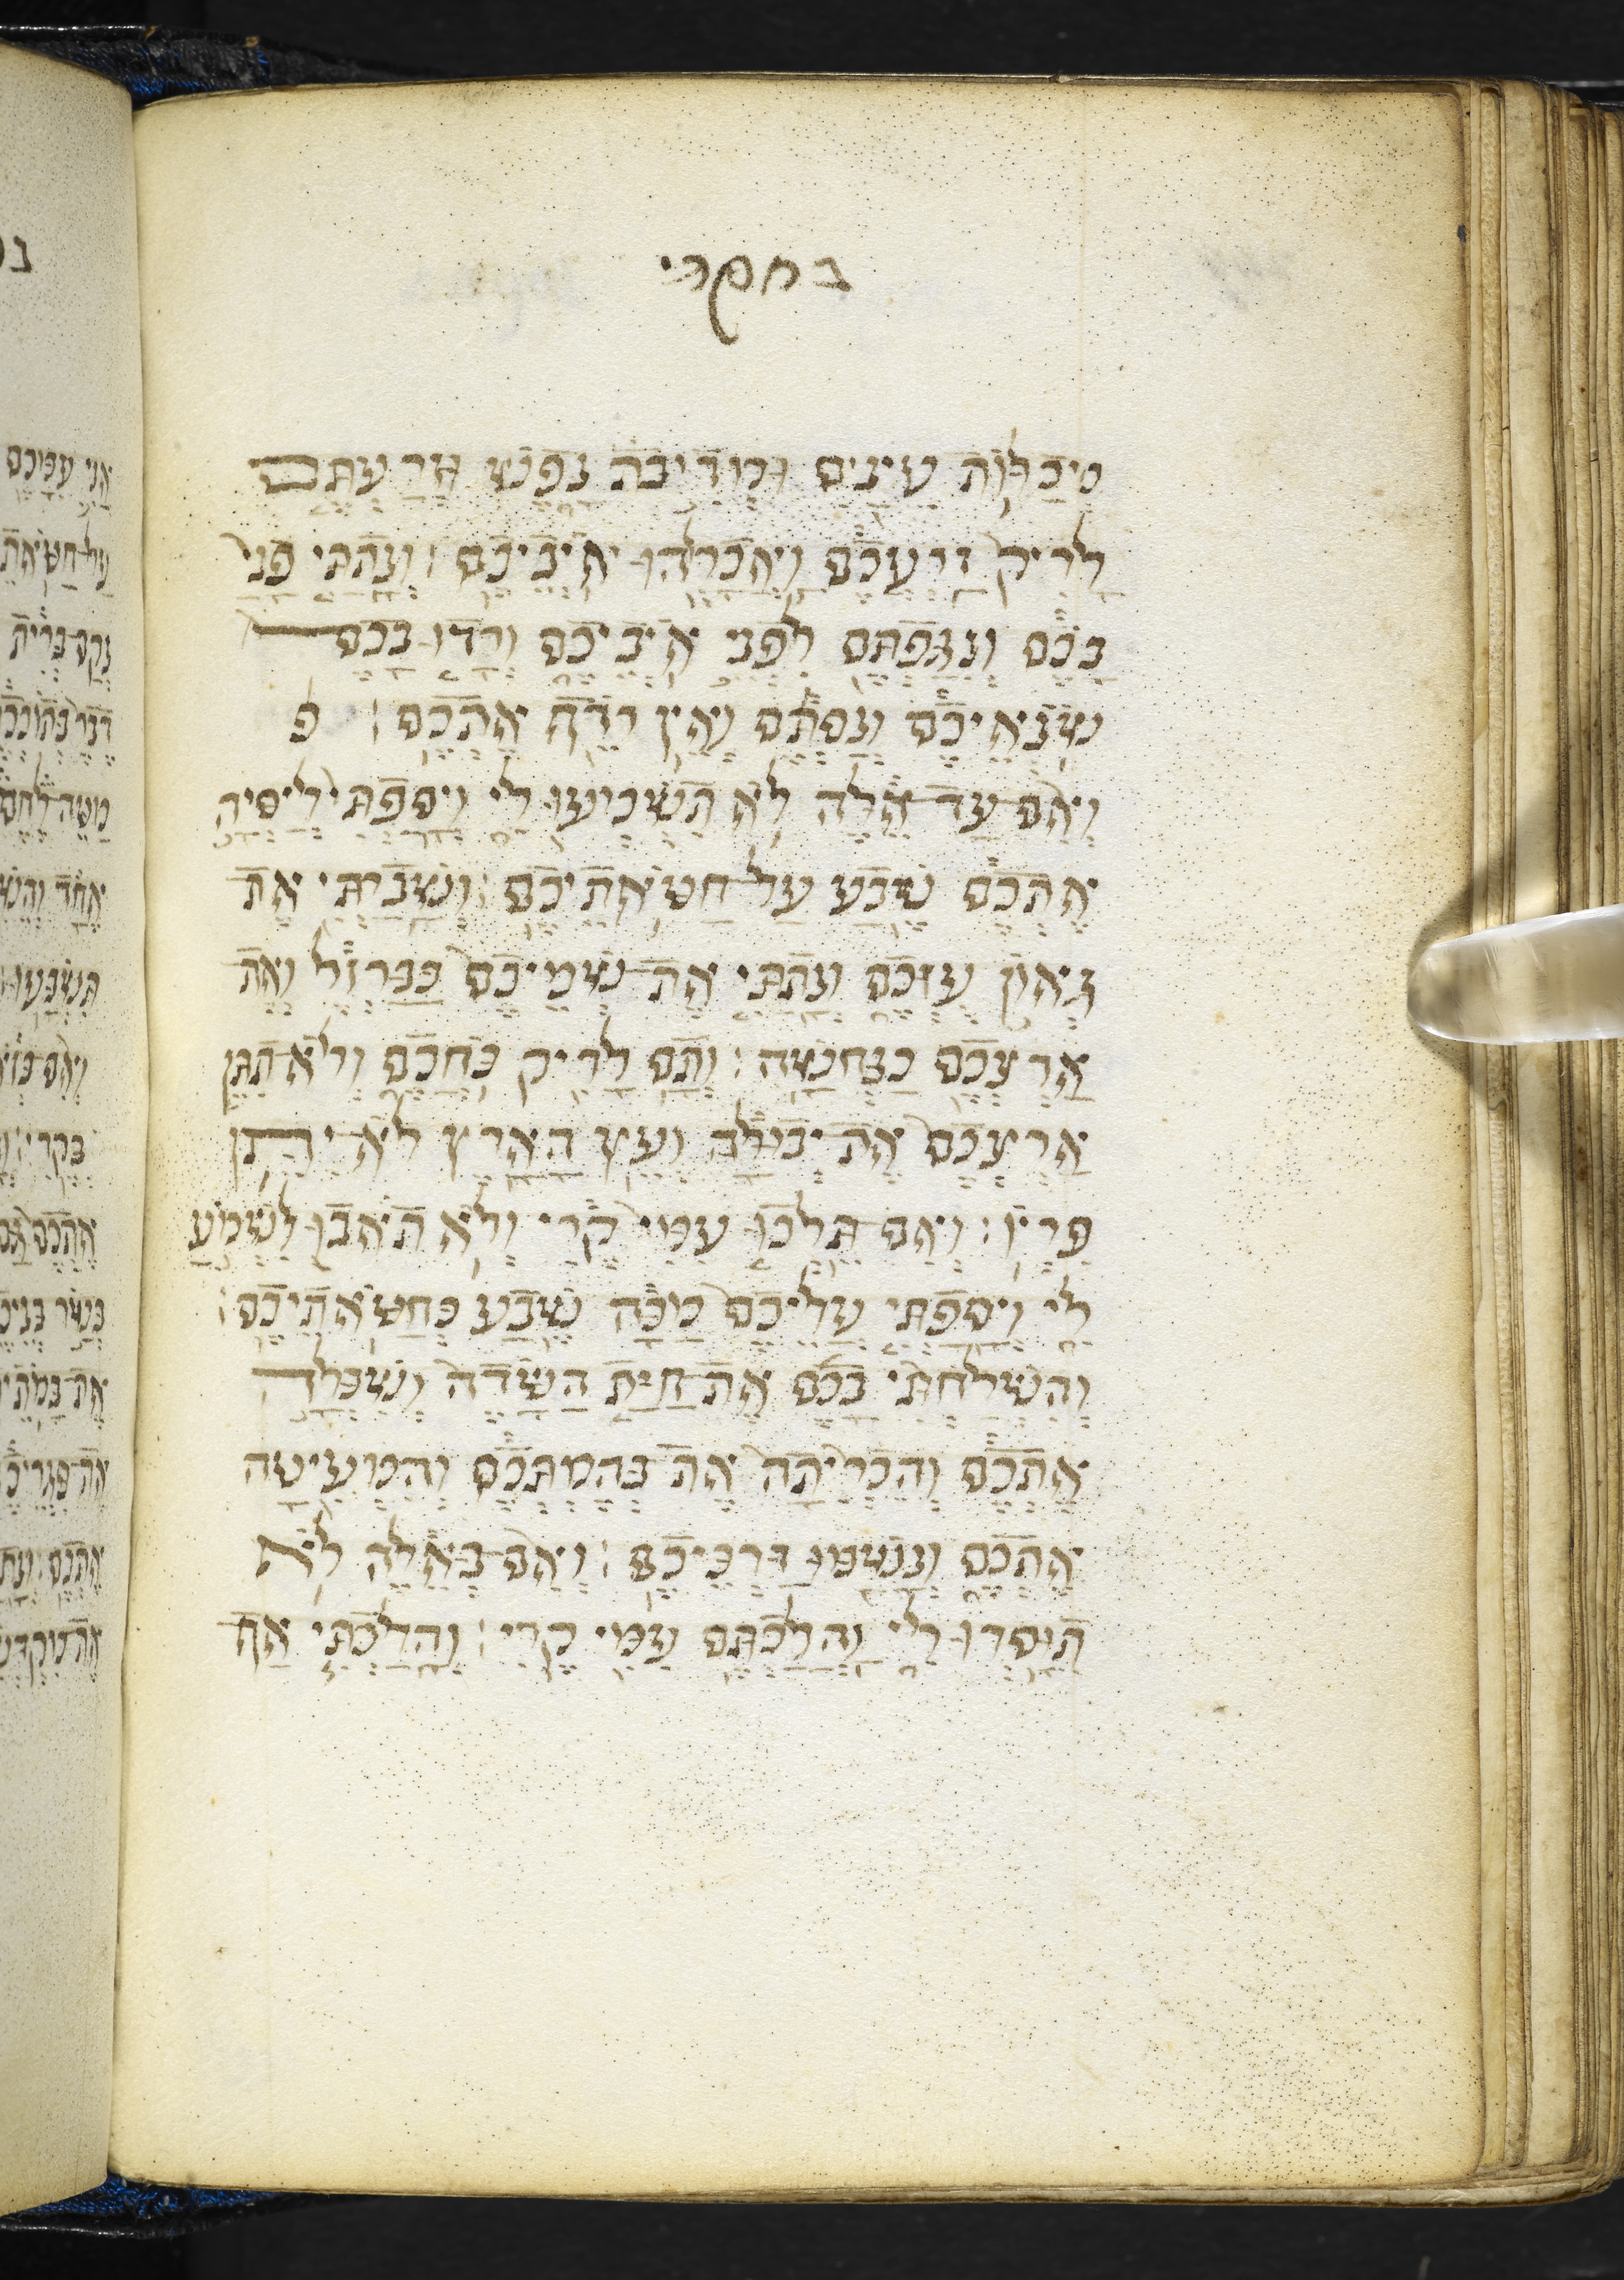 בחקתי
מכלות עינים ומדיבת נפש וזרעתם
לריק זרעכם ואכלהו איביכם׃ ונתתי פני
בכם ונגפתם לפני איביכם ורדו בכם
שנאיכם ונסתם ואין רדף אתכם׃ פ
ואם עד אלה לא תשמעו לי ויספתי ליסרה
אתכם שבע על חטאתיכם׃ ושברתי את
גאון עזכם ונתתי את שמיכם כברזל ואת
ארצכם כנחשה׃ ותם לריק כחכם ולא תתן
ארצכם את יבולה ועץ הארץ לא יתן
פריו׃ ואם תלכו עמי קרי ולא תאבו לשמע
לי ויספתי עליכם מכה שבע כחטאתיכם׃
והשלחתי בכם את חית השדה ושכלה
אתכם והכריתה את בהמתכם והמעיטה
אתכם ונשמו דרכיכם׃ ואם באלה לא
תוסרו לי והלכתם עמי קרי׃ והלכתי אף